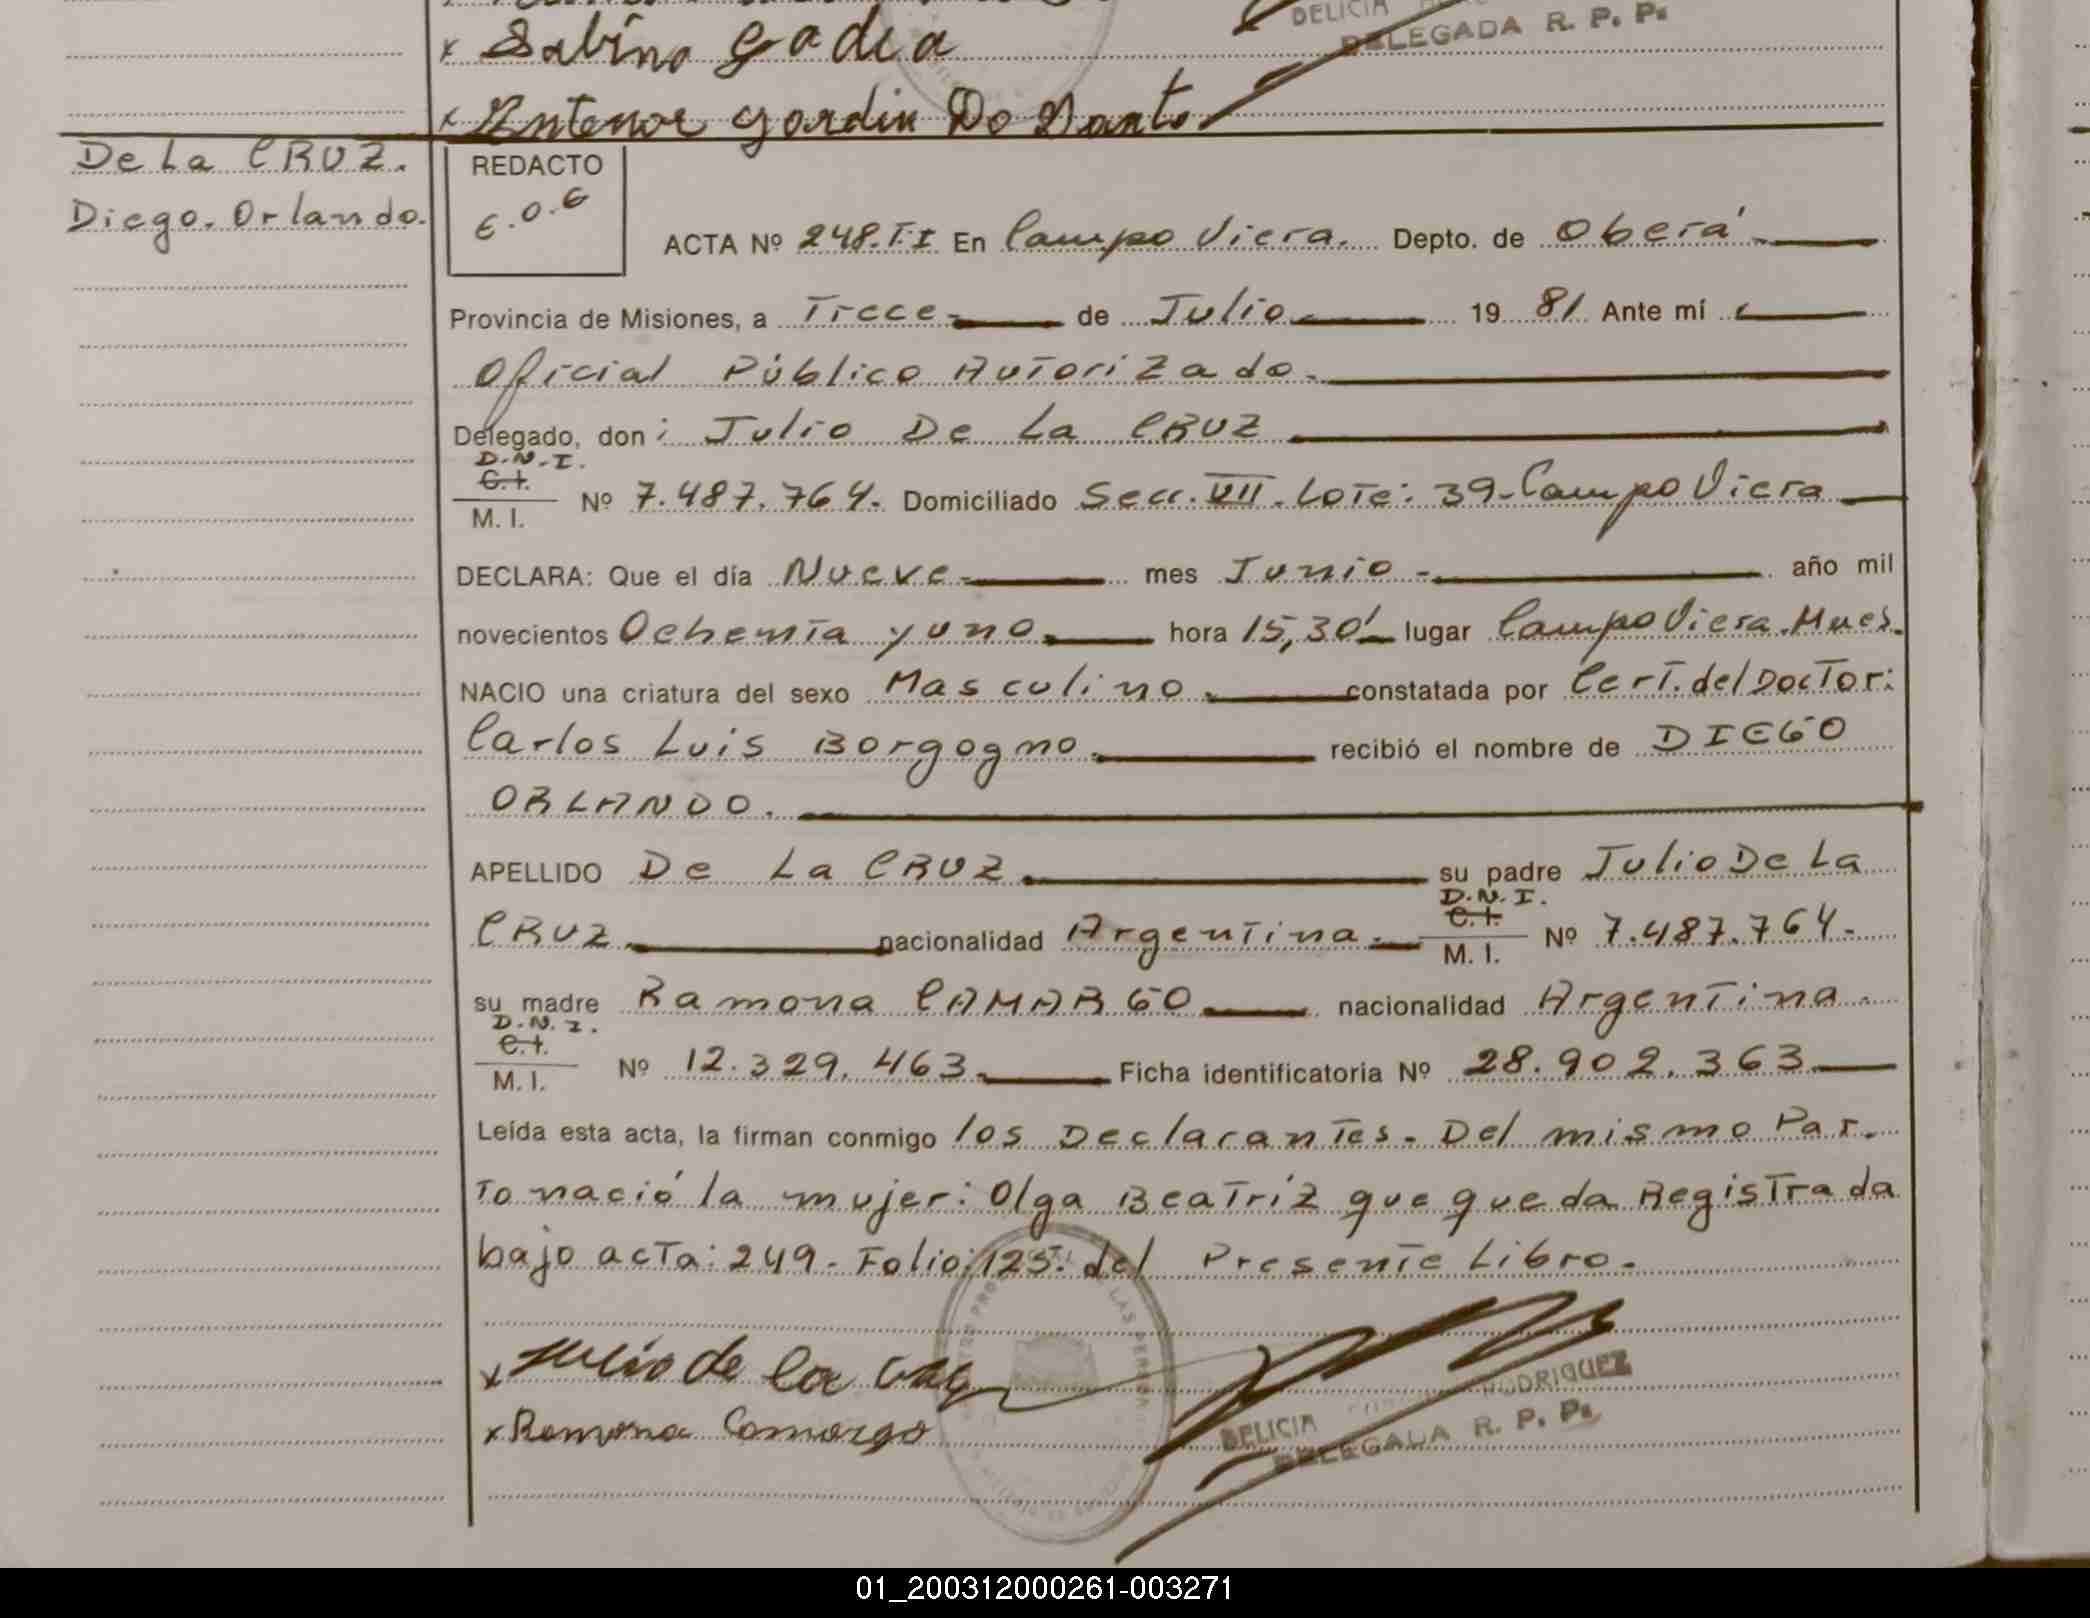 DELICIA
DELEGADA R. P. P.
x Sabino Gadea
x Antenor Gordin Do Santo
De La CRUZ.
Diego. Orlando.
REDACTO
E.O.G
ACTA Nº 248.T.I En Campo Viera. Depto. de Oberá
Provincia de Misiones, a Trece de Julio 19 81 Ante mí
Oficial Público Autorizado.
Delegado, don: Julio De La CRUZ
D.N.I.
C.I.
M. I. Nº 7.487.764. Domiciliado Secc. VII. Lote: 39-Campo Viera
DECLARA: Que el día Nueve mes Junio año mil
novecientos Ochenta y uno hora 15,30' lugar Campo Viera. Mnes.
NACIO una criatura del sexo Masculino constatada por Cert. del Doctor:
Carlos Luis Borgogno. recibió el nombre de DIEGO
ORLANDO.
APELLIDO De La CRUZ su padre Julio De La
CRUZ nacionalidad Argentina. D.N.I. C.I. M. I. Nº 7.487.764.
su madre Ramona CAMARGO nacionalidad Argentina.
D.N.I.
C.I.
M. I. Nº 12.329.463 Ficha identificatoria Nº 28.902.363
Leída esta acta, la firman conmigo los Declarantes. Del mismo Par.
to nació la mujer: Olga Beatriz que queda Registrada
bajo acta: 249. Folio: 125. del Presente Libro.
x Julio de la Cruz
x Ramona Camargo
DELICIA RODRIGUEZ
DELEGADA R. P. P.
01_200312000261-003271